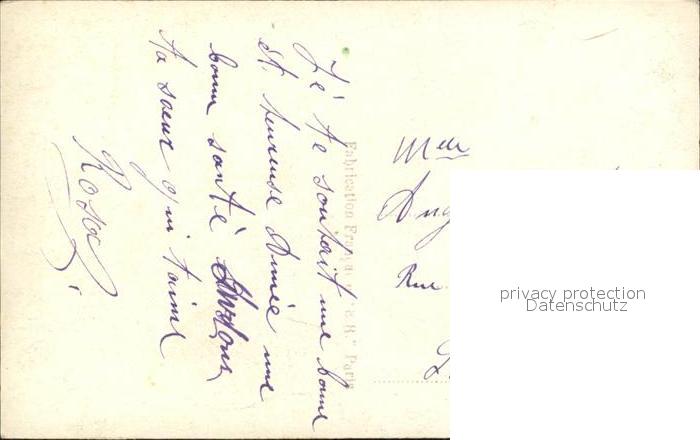 Je te souhait une bonne
et heureuse Année une
bonne santé
ta soeur qui t'aime
Rosa
Fabrication Française
Paris
Melle
Ang
Rue
privacy protection
Datenschutz